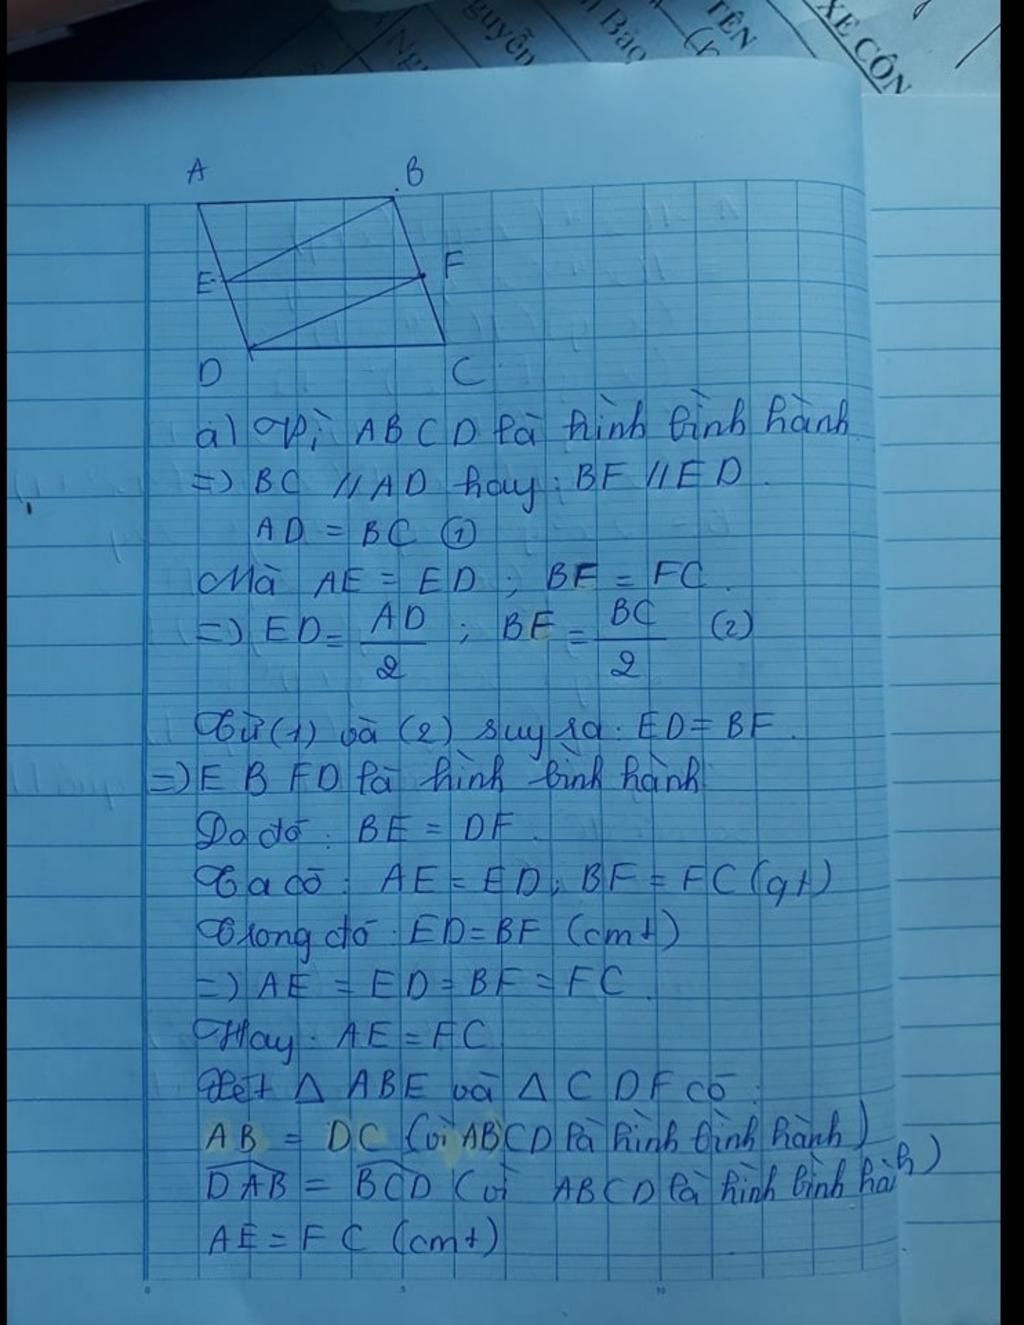 guyễn
Bảo
TÊN
XE CÔN
A B
E F
D C
a) Vì ABCD là hình bình hành
=) BC // AD hay: BF // ED.
AD = BC ①
Mà AE = ED ; BF = FC.
=) ED = AD/2 ; BF = BC/2 (2)
Từ (1) và (2) suy ra: ED = BF.
=) E B F D là hình bình hành
Do đó: BE = DF.
Ta có: AE = ED; BF = FC (gt)
Trong đó: ED = BF (cmt)
=) AE = ED = BF = FC.
Hay: AE = FC
Xét △ ABE và △ C D F có:
AB = DC (vì ABCD là hình bình hành)
DAB = BCD (vì ABCD là hình bình hành)
AE = FC (cmt)